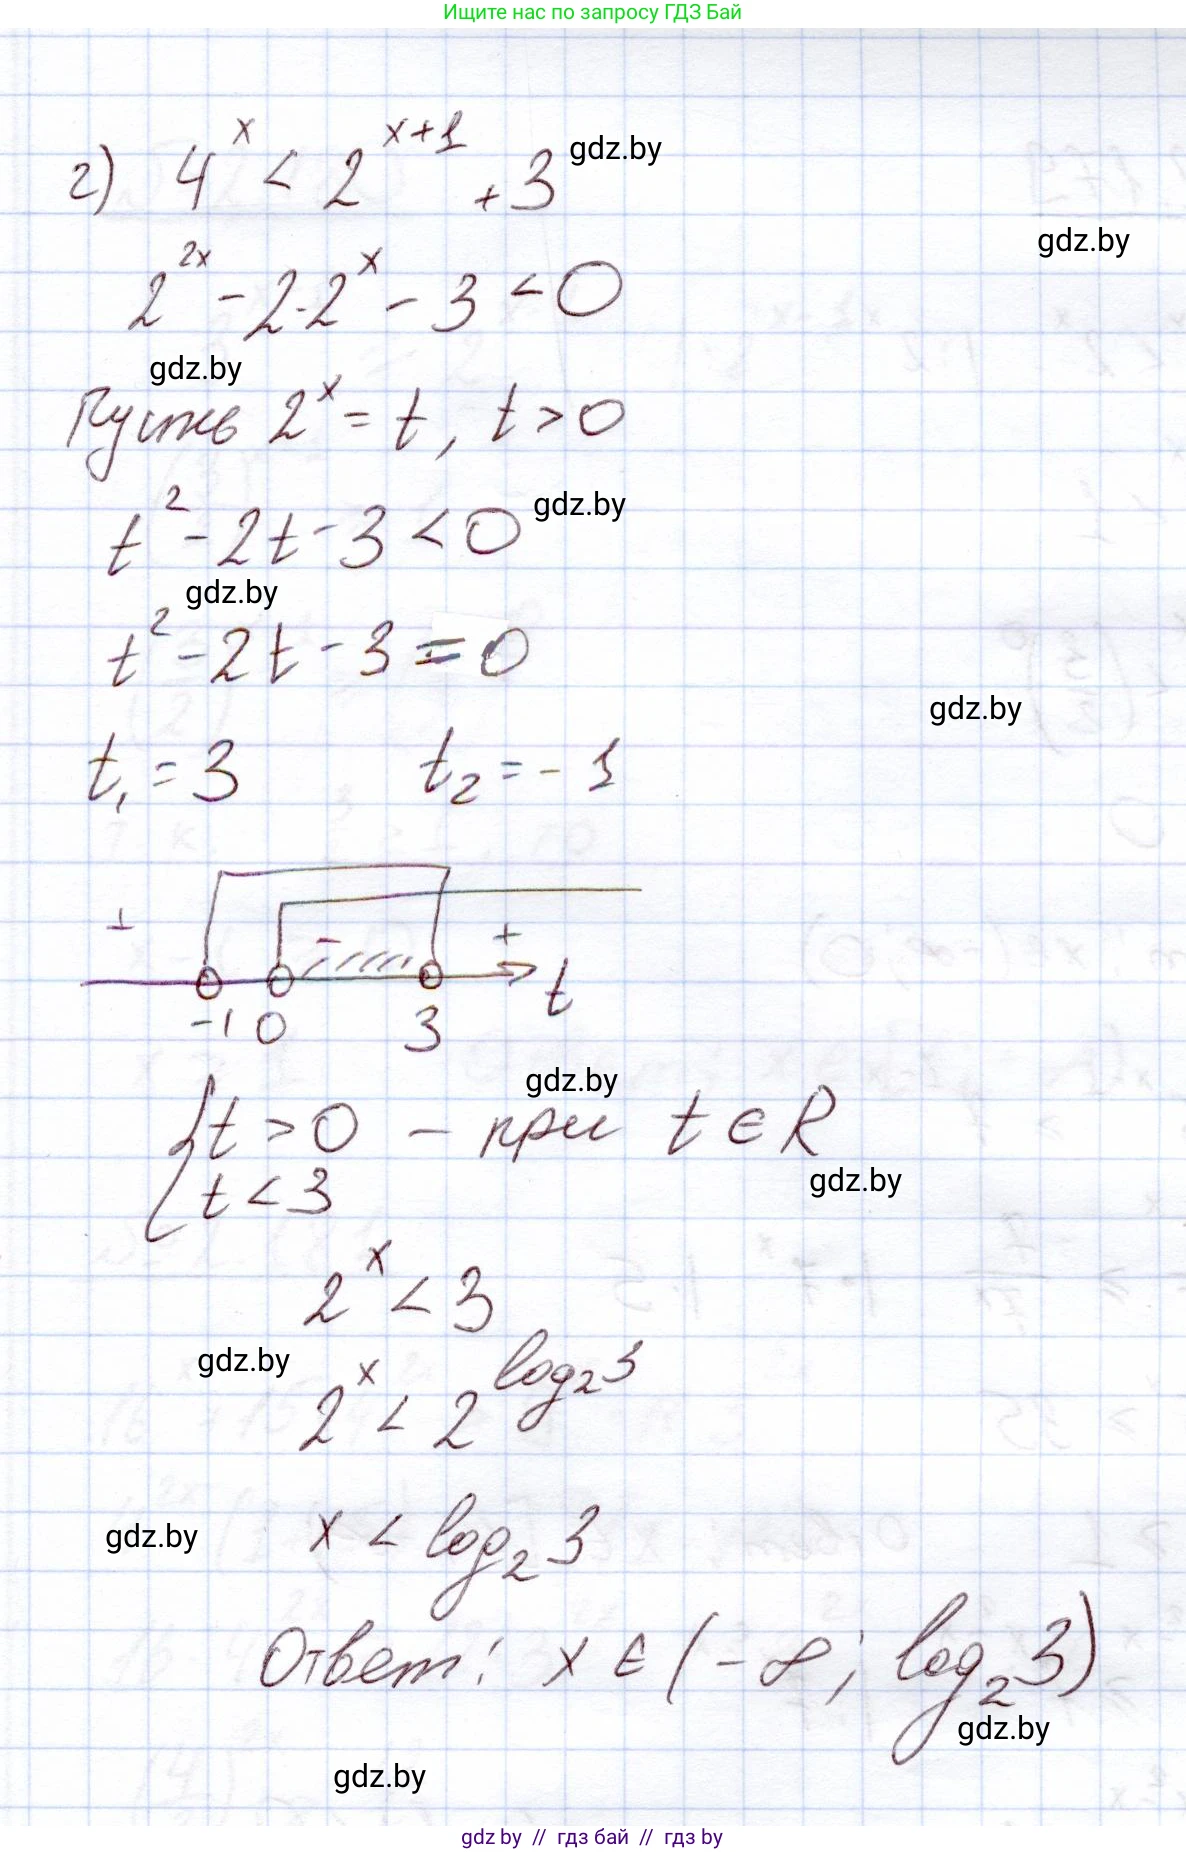 Ищите нас по запросу ГДЗ Бай
г) 4^x < 2^{x+1} + 3
gdz.by
gdz.by
2^{2x} - 2·2^x - 3 < 0
gdz.by
Пусть 2^x = t, t > 0
gdz.by
t^2 - 2t - 3 < 0
gdz.by
t^2 - 2t - 3 = 0
gdz.by
t_1 = 3 t_2 = -1
+ - +
-1 0 3 t
gdz.by
{ t > 0 – при t ∈ R
gdz.by
t < 3
2^x < 3
gdz.by
2^x < 2^{log_2 3}
gdz.by
x < log_2 3
Ответ: x ∈ (-∞; log_2 3)
gdz.by
gdz.by
gdz by // гдз бай // гдз by